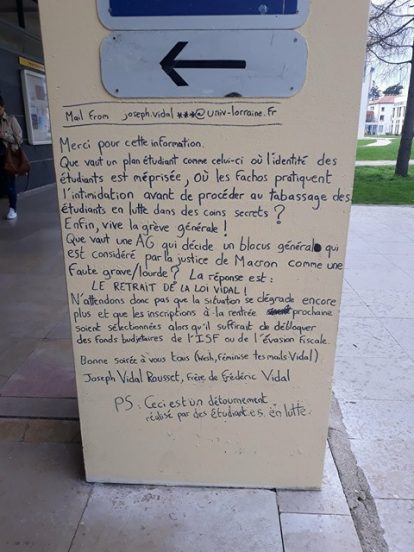 Mail From joseph.vidal ***@univ-lorraine.fr
Merci pour cette information.
Que vaut un plan étudiant comme celui-ci où l'identité des
étudiants est méprisée, où les fachos pratiquent
l'intimidation avant de procéder au tabassage des
étudiants en lutte dans des coins secrets ?
Enfin, vive la grève générale !
Que vaut une AG qui décide un blocus général qui
est considéré par la justice de Macron comme une
faute grave/lourde ? La réponse est :
LE RETRAIT DE LA LOI VIDAL !
N'attendons donc pas que la situation se dégrade encore
plus et que les inscriptions à la rentrée prochaine
soient sélectionnées alors qu'il suffirait de débloquer
des fonds budjétaires de l'ISF ou de l'évasion fiscale.
Bonne soirée à vous tous (Wesh, féminise tes mails Vidal)
Joseph Vidal Rousset, frère de Frédéric Vidal
PS : Ceci est un détournement
réalisé par des étudiant.e.s en lutte.